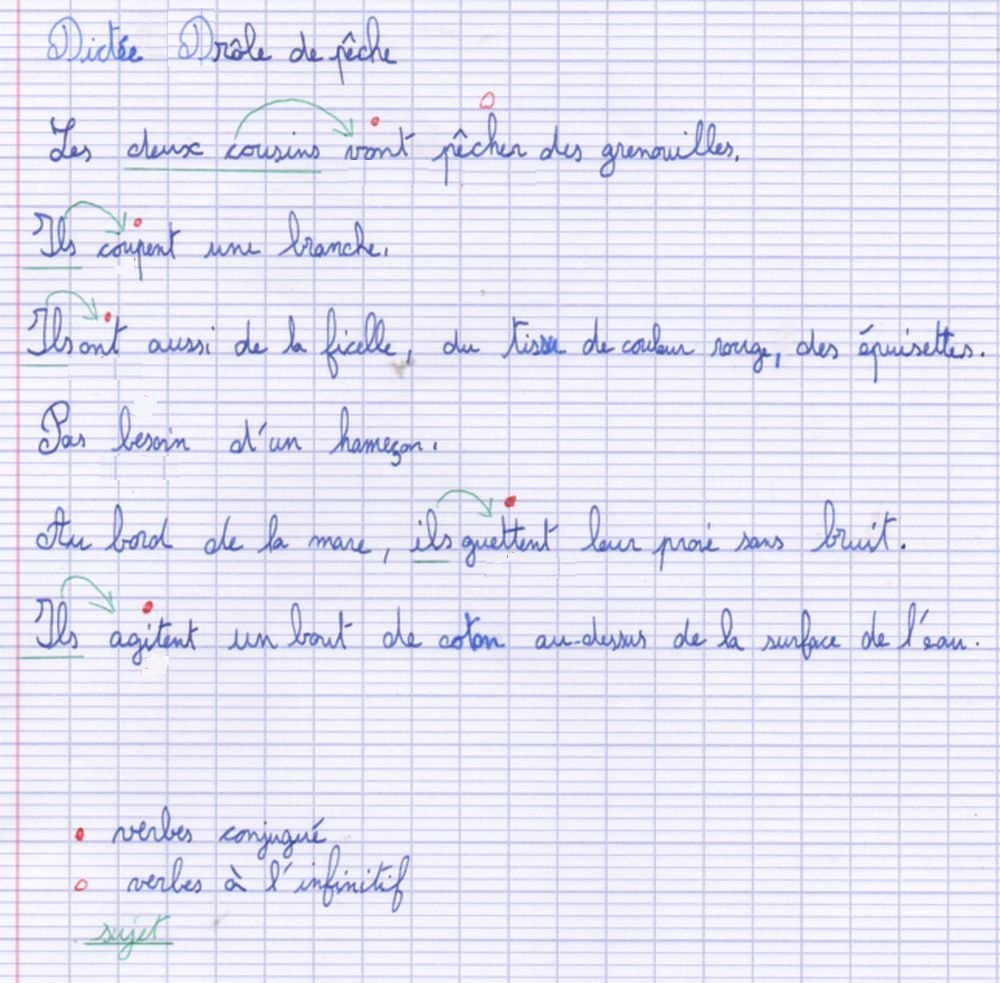 Dictée Drôle de pêche
Les deux cousins vont pêcher des grenouilles.
Ils coupent une branche.
Ils ont aussi de la ficelle, du tissu de couleur rouge, des épuisettes.
Pas besoin d'un hameçon.
Au bord de la mare, ils guettent leur proie sans bruit.
Ils agitent un bout de coton au-dessus de la surface de l'eau.
verbes conjugué
verbes à l'infinitif
sujet